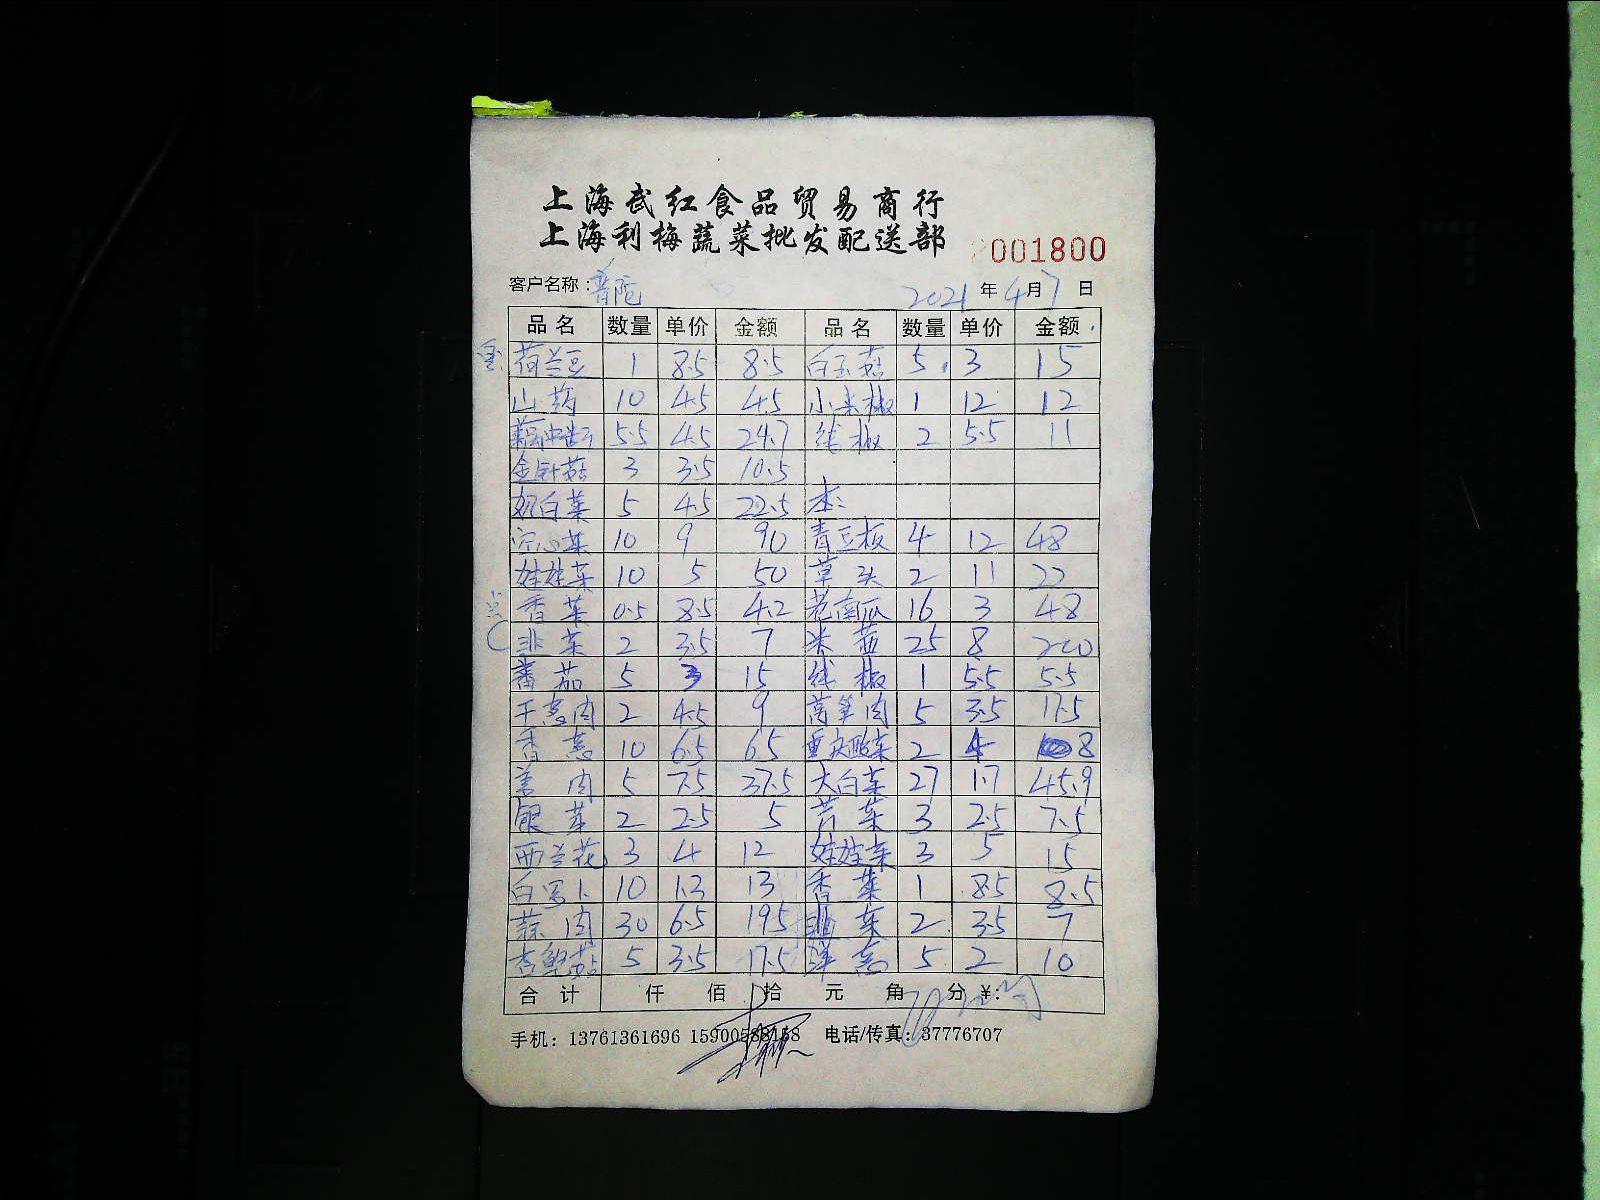 上海武红食品贸易商行
上海利梅蔬菜批发配送部
001800
客户名称：普陀 2021年4月7日
品名 数量 单价 金额 品名 数量 单价 金额
荷兰豆 1 8.5 8.5 白玉菇 5 3 15
山药 10 4.5 45 小米椒 1 12 12
5.5 4.5 24.7 线椒 2 5.5 11
金针菇 3 3.5 10.5
奶白菜 5 4.5 22.5
空心菜 10 9 90 青豆板 4 12 48
娃娃菜 10 5 50 草头 2 11 22
香菜 0.5 8.5 4.2 老南瓜 16 3 48
韭菜 2 3.5 7 米苋 25 8 200
番茄 5 3 15 线椒 1 5.5 5.5
干葱肉 2 4.5 9 莴笋肉 5 3.5 17.5
香葱 10 6.5 65 重庆酸菜 2 4 8
姜肉 5 7.5 37.5 大白菜 27 1.7 45.9
银芽 2 2.5 5 芹菜 3 2.5 7.5
西兰花 3 4 12 娃娃菜 3 5 15
白萝卜 10 1.3 13 香菜 1 8.5 8.5
蒜肉 30 6.5 195 韭菜 2 3.5 7
杏鲍菇 5 3.5 17.5 洋葱 5 2 10
合计 仟 佰 拾 元 角 分 ￥：
手机：13761361696 15900588158 电话/传真：37776707